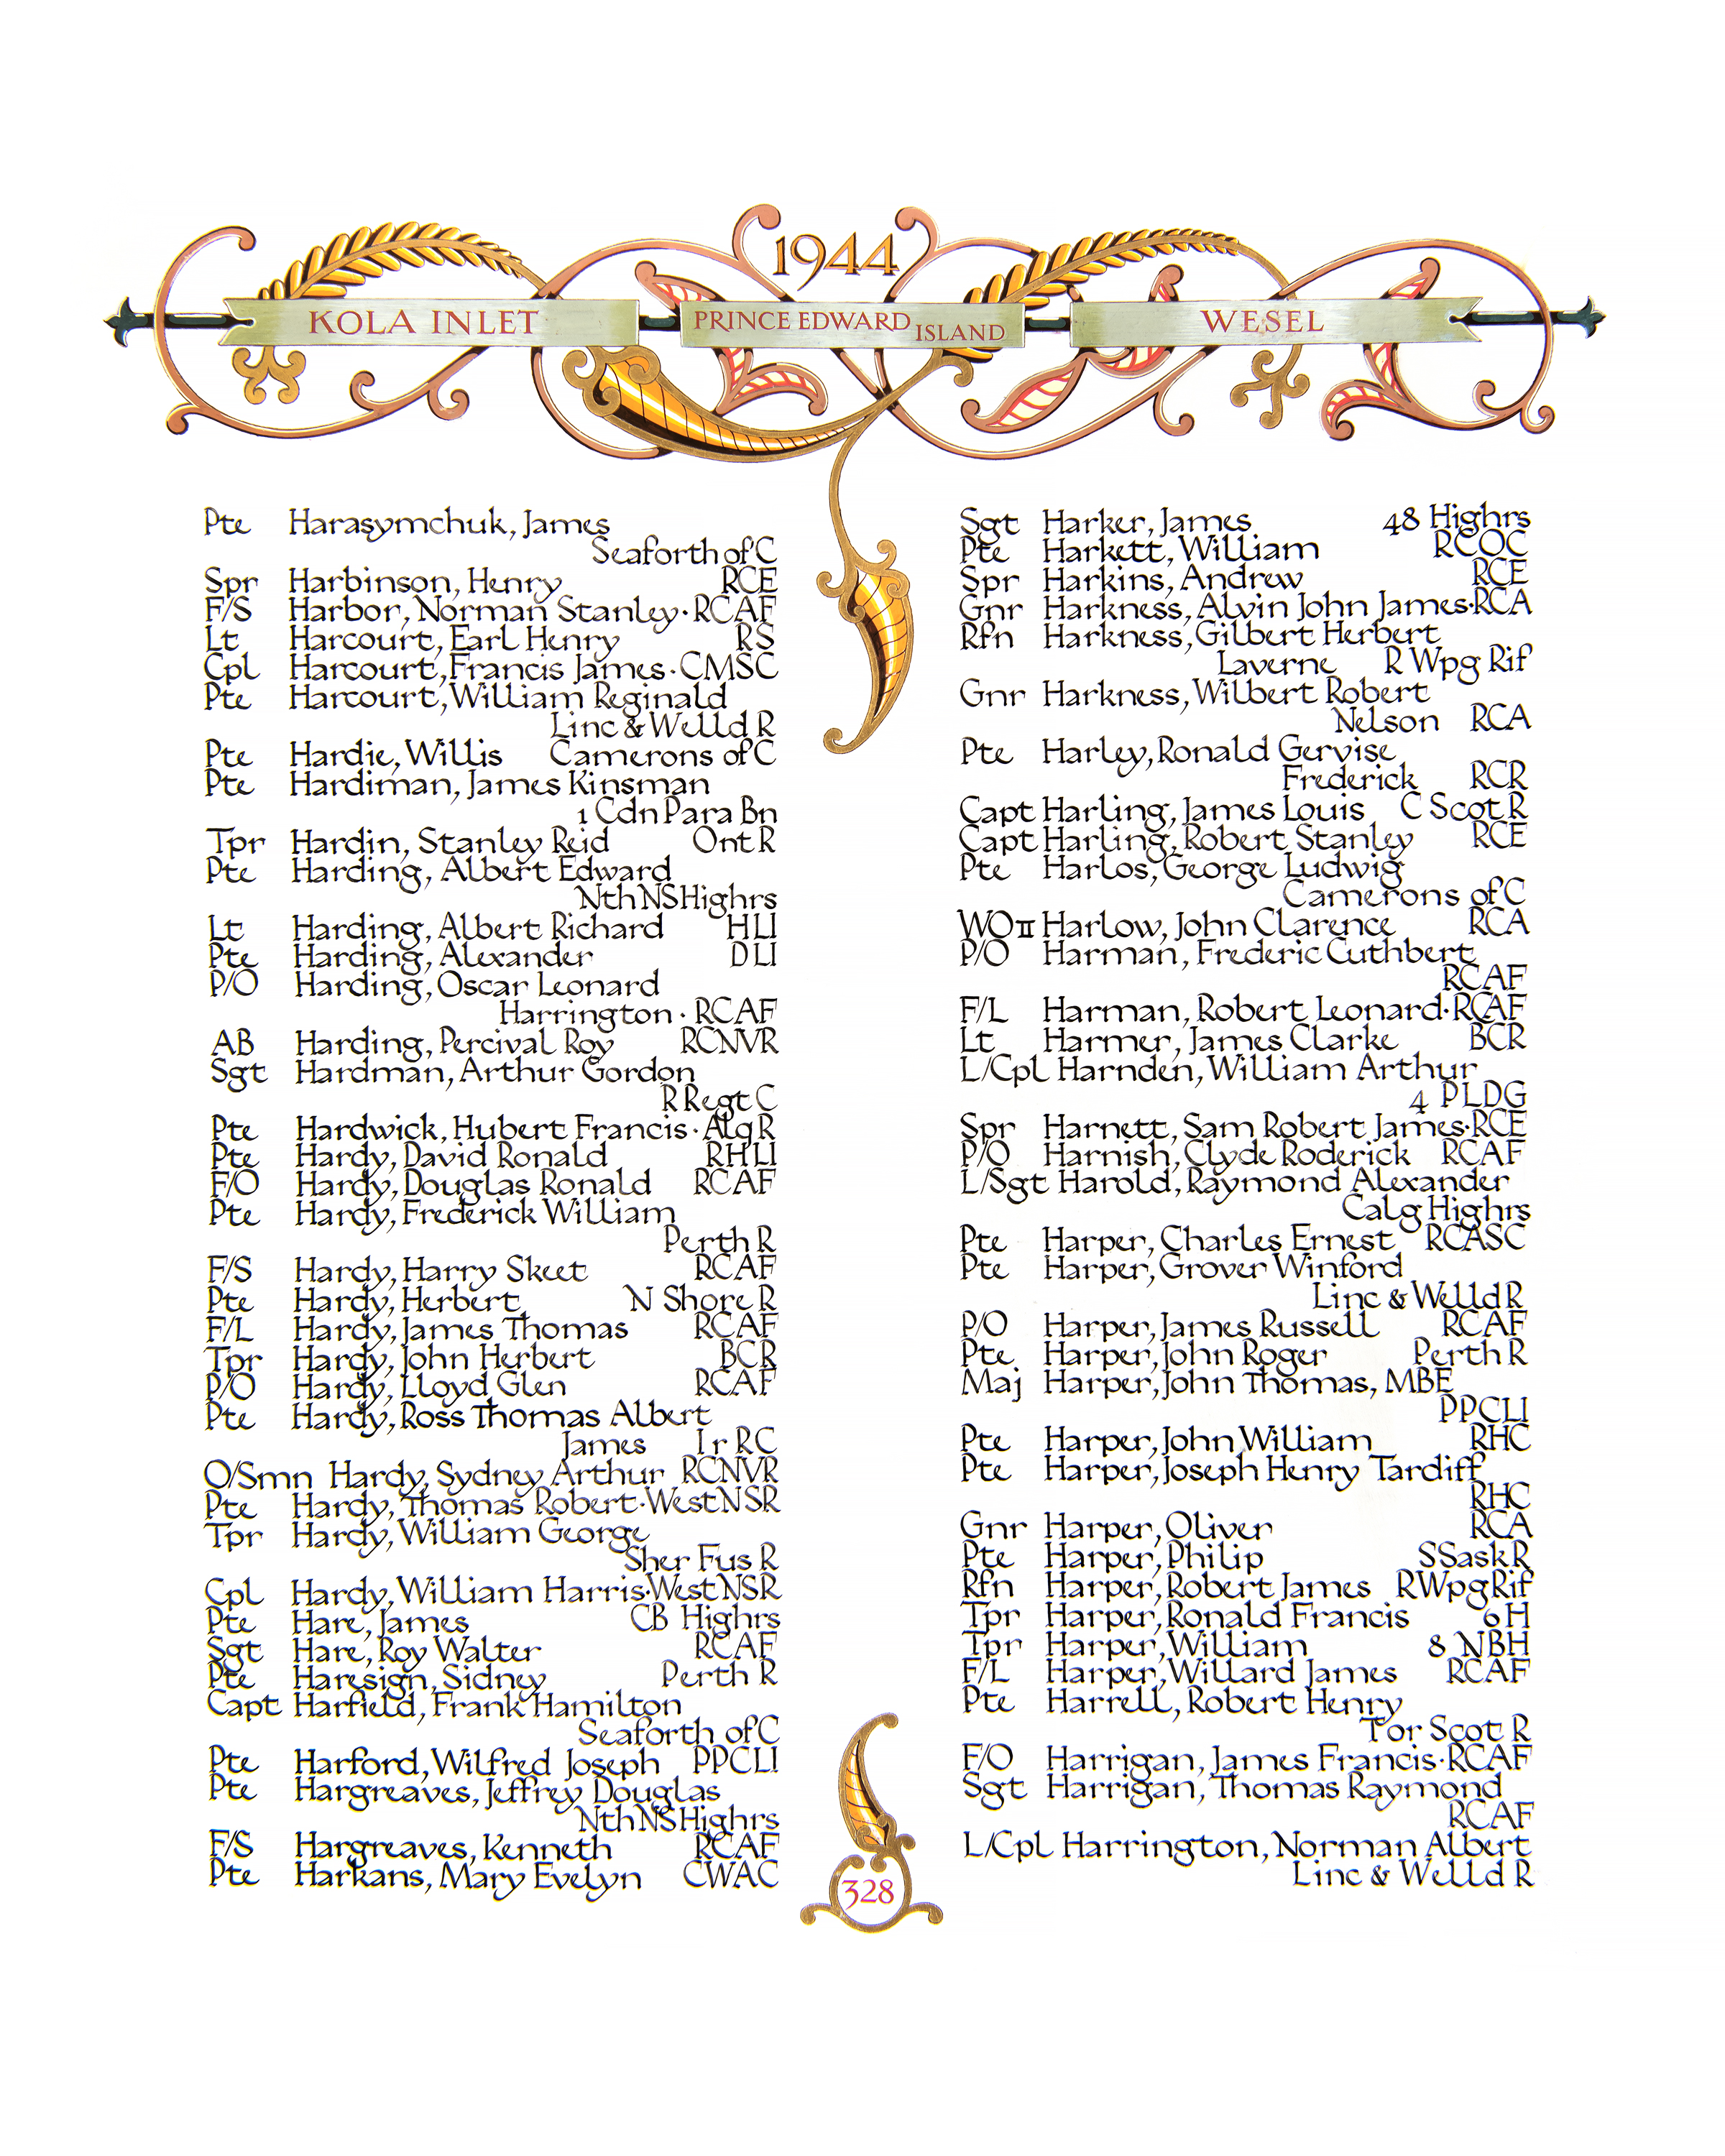 1944
KOLA INLET
PRINCE EDWARD ISLAND
WESEL
Pte Harasymchuk, James
Seaforth of C
Spr Harbinson, Henry RCE
F/S Harbor, Norman Stanley · RCAF
Lt Harcourt, Earl Henry RS
Cpl Harcourt, Francis James · CMSC
Pte Harcourt, William Reginald
Linc & Welld R
Pte Hardie, Willis Camerons of C
Pte Hardiman, James Kinsman
1 Cdn Para Bn
Tpr Hardin, Stanley Reid Ont R
Pte Harding, Albert Edward
Nth NS Highrs
Lt Harding, Albert Richard HLI
Pte Harding, Alexander DLI
P/O Harding, Oscar Leonard
Harrington · RCAF
AB Harding, Percival Roy RCNVR
Sgt Hardman, Arthur Gordon
R Regt C
Pte Hardwick, Hubert Francis · Alq R
Pte Hardy, David Ronald RHLI
F/O Hardy, Douglas Ronald RCAF
Pte Hardy, Frederick William
Perth R
F/S Hardy, Harry Skeet RCAF
Pte Hardy, Herbert N Shore R
F/L Hardy, James Thomas RCAF
Tpr Hardy, John Herbert BCR
P/O Hardy, Lloyd Glen RCAF
Pte Hardy, Ross Thomas Albert
James Ir RC
O/Smn Hardy, Sydney Arthur RCNVR
Pte Hardy, Thomas Robert · West NSR
Tpr Hardy, William George
Sher Fus R
Cpl Hardy, William Harris · West NSR
Pte Hare, James CB Highrs
Sgt Hare, Roy Walter RCAF
Pte Haresign, Sidney Perth R
Capt Harfield, Frank Hamilton
Seaforth of C
Pte Harford, Wilfred Joseph PPCLI
Pte Hargreaves, Jeffrey Douglas
Nth NS Highrs
F/S Hargreaves, Kenneth RCAF
Pte Harkans, Mary Evelyn CWAC
Sgt Harker, James 48 Highrs
Pte Harkett, William RCOC
Spr Harkins, Andrew RCE
Gnr Harkness, Alvin John James · RCA
Rfn Harkness, Gilbert Herbert
Laverne R Wpg Rif
Gnr Harkness, Wilbert Robert
Nelson RCA
Pte Harley, Ronald Gervise
Frederick RCR
Capt Harling, James Louis C Scot R
Capt Harling, Robert Stanley RCE
Pte Harlos, George Ludwig
Camerons of C
WO II Harlow, John Clarence RCA
P/O Harman, Frederic Cuthbert
RCAF
F/L Harman, Robert Leonard · RCAF
Lt Harmer, James Clarke BCR
L/Cpl Harnden, William Arthur
4 PLDG
Spr Harnett, Sam Robert James · RCE
P/O Harnish, Clyde Roderick RCAF
L/Sgt Harold, Raymond Alexander
Calg Highrs
Pte Harper, Charles Ernest RCASC
Pte Harper, Grover Winford
Linc & Welld R
P/O Harper, James Russell RCAF
Pte Harper, John Roger Perth R
Maj Harper, John Thomas, MBE
PPCLI
Pte Harper, John William RHC
Pte Harper, Joseph Henry Tardiff
RHC
Gnr Harper, Oliver RCA
Pte Harper, Philip SSask R
Rfn Harper, Robert James RWpg Rif
Tpr Harper, Ronald Francis 6 H
Tpr Harper, William 8 NBH
F/L Harper, Willard James RCAF
Pte Harrell, Robert Henry
Tor Scot R
F/O Harrigan, James Francis · RCAF
Sgt Harrigan, Thomas Raymond
RCAF
L/Cpl Harrington, Norman Albert
Linc & Welld R
328